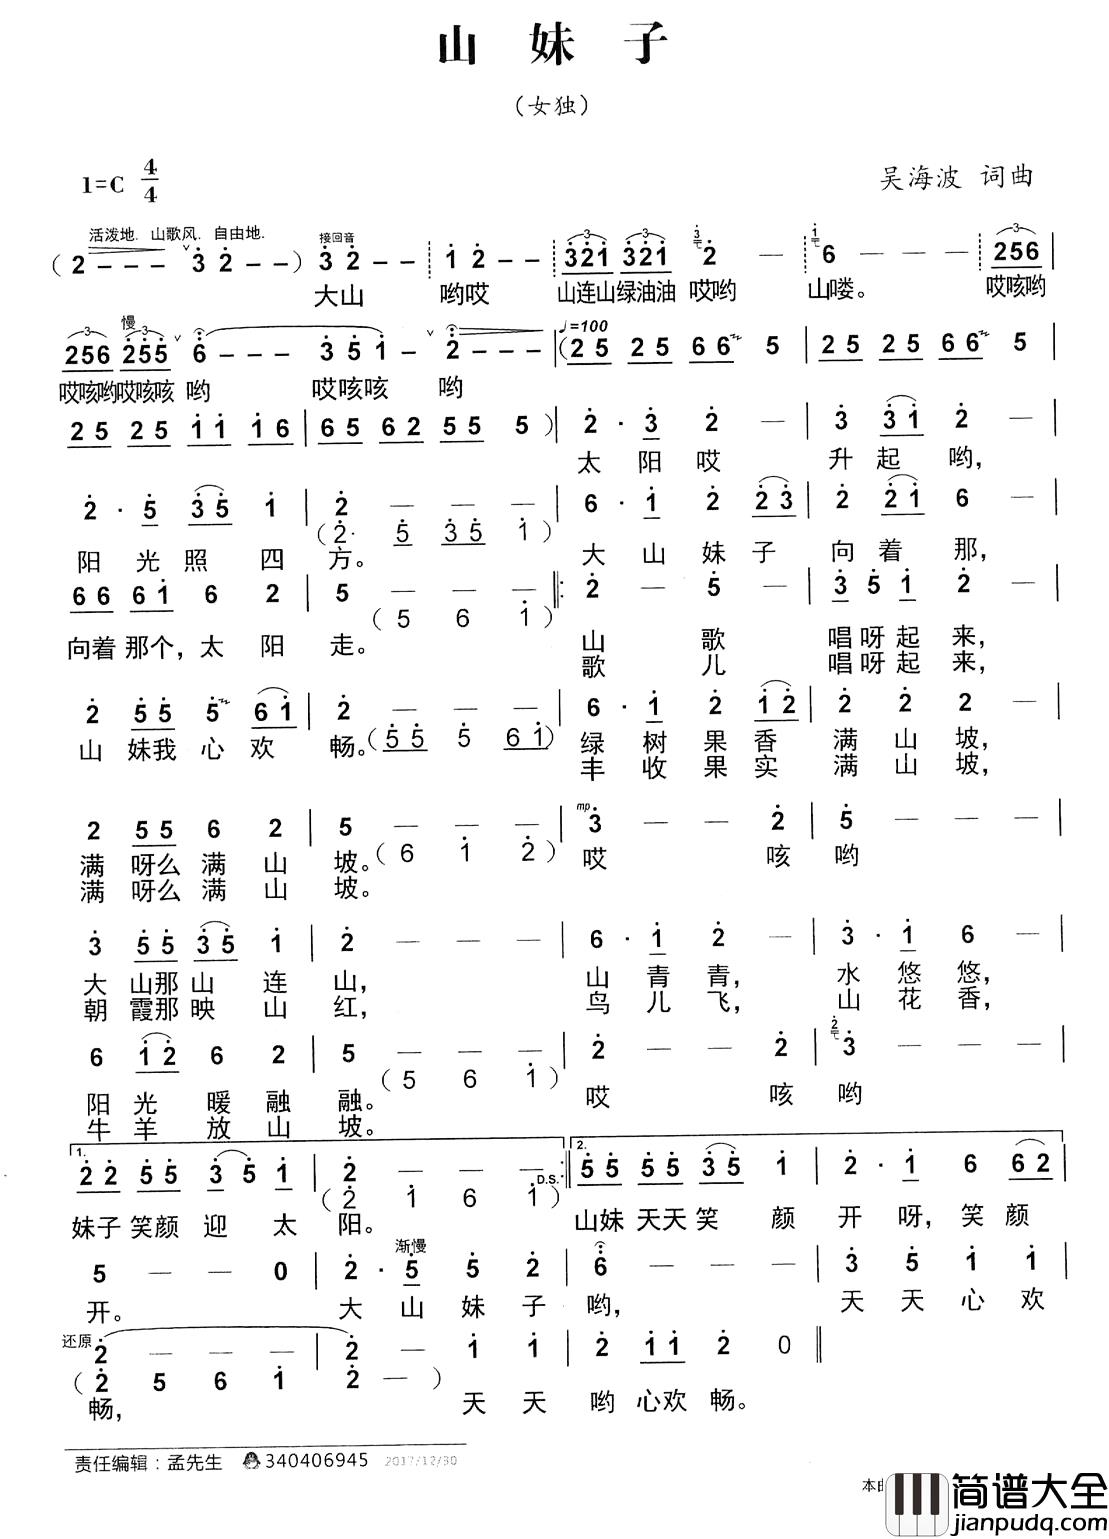 山 妹 子
(女独)
1=C 4/4
吴海波 词曲
活泼地. 山歌风. 自由地.
接回音
( 2 - - - 3 2 - - ) 3 2 - - 1 2 - - 3 2 1 3 2 1 2 — 6 — — — 2 5 6 |
大山 哟哎 山连山绿油油 哎哟 山喽。 哎咳哟
慢 ♩=100
2 5 6 2 5 5 6 - - - 3 5 1 - 2 - - | ( 2 5 2 5 6 6 5 | 2 5 2 5 6 6 5 |
哎咳哟哎咳咳 哟 哎咳咳 哟
2 5 2 5 1 1 1 6 | 6 5 6 2 5 5 5 ) | 2 · 3 2 — | 3 3 1 2 — |
太阳哎 升起哟,
2 · 5 3 5 1 | 2 — — — | 6 · 1 2 2 3 | 2 2 1 6 — |
( 2 · 5 3 5 1 )
阳光照四方。 大山妹子 向着那,
6 6 6 1 6 2 | 5 — — — 2 — 5 — | 3 5 1 2 — |
( 5 6 1 )
向着那个,太阳走。 山歌 唱呀起来,
歌儿 唱呀起来,
2 5 5 5 6 1 | 2 — — — | 6 · 1 2 1 2 | 2 2 2 — |
( 5 5 5 6 1 )
山妹我心欢畅。 绿树果香 满山坡,
丰收果实 满山坡,
mp
2 5 5 6 2 | 5 — — — | 3 — — 2 | 5 — — — |
( 6 1 2 )
满呀么满山坡。 哎 咳 哟
满呀么满山坡。
3 5 5 3 5 1 | 2 — — — | 6 · 1 2 — | 3 · 1 6 — |
大山那山连山, 山青青, 水悠悠,
朝霞那映山红, 鸟儿飞, 山花香,
6 1 2 6 2 | 5 — — — | 2 — — 2 | 3 — — — |
( 5 6 1 )
阳光暖融融。 哎 咳 哟
牛羊放山坡。
1. D.S. 2.
2 2 5 5 3 5 1 | 2 — — — 5 5 5 5 3 5 1 | 2 · 1 6 6 2 |
( 2 1 6 1 )
妹子笑颜迎太阳。 山妹天天笑颜 开呀,笑颜
渐慢
5 — — 0 | 2 · 5 5 2 | 6 — — — | 3 5 1 1 |
开。 大山妹子 哟, 天天心欢
还原
2 — — — | 2 — 1 1 | 2 1 1 2 0 ‖
( 2 5 6 1 2 — )
畅, 天天 哟心欢畅。
责任编辑:孟先生 340406945 2017/12/30
本曲
简谱大全
jianpudq.com